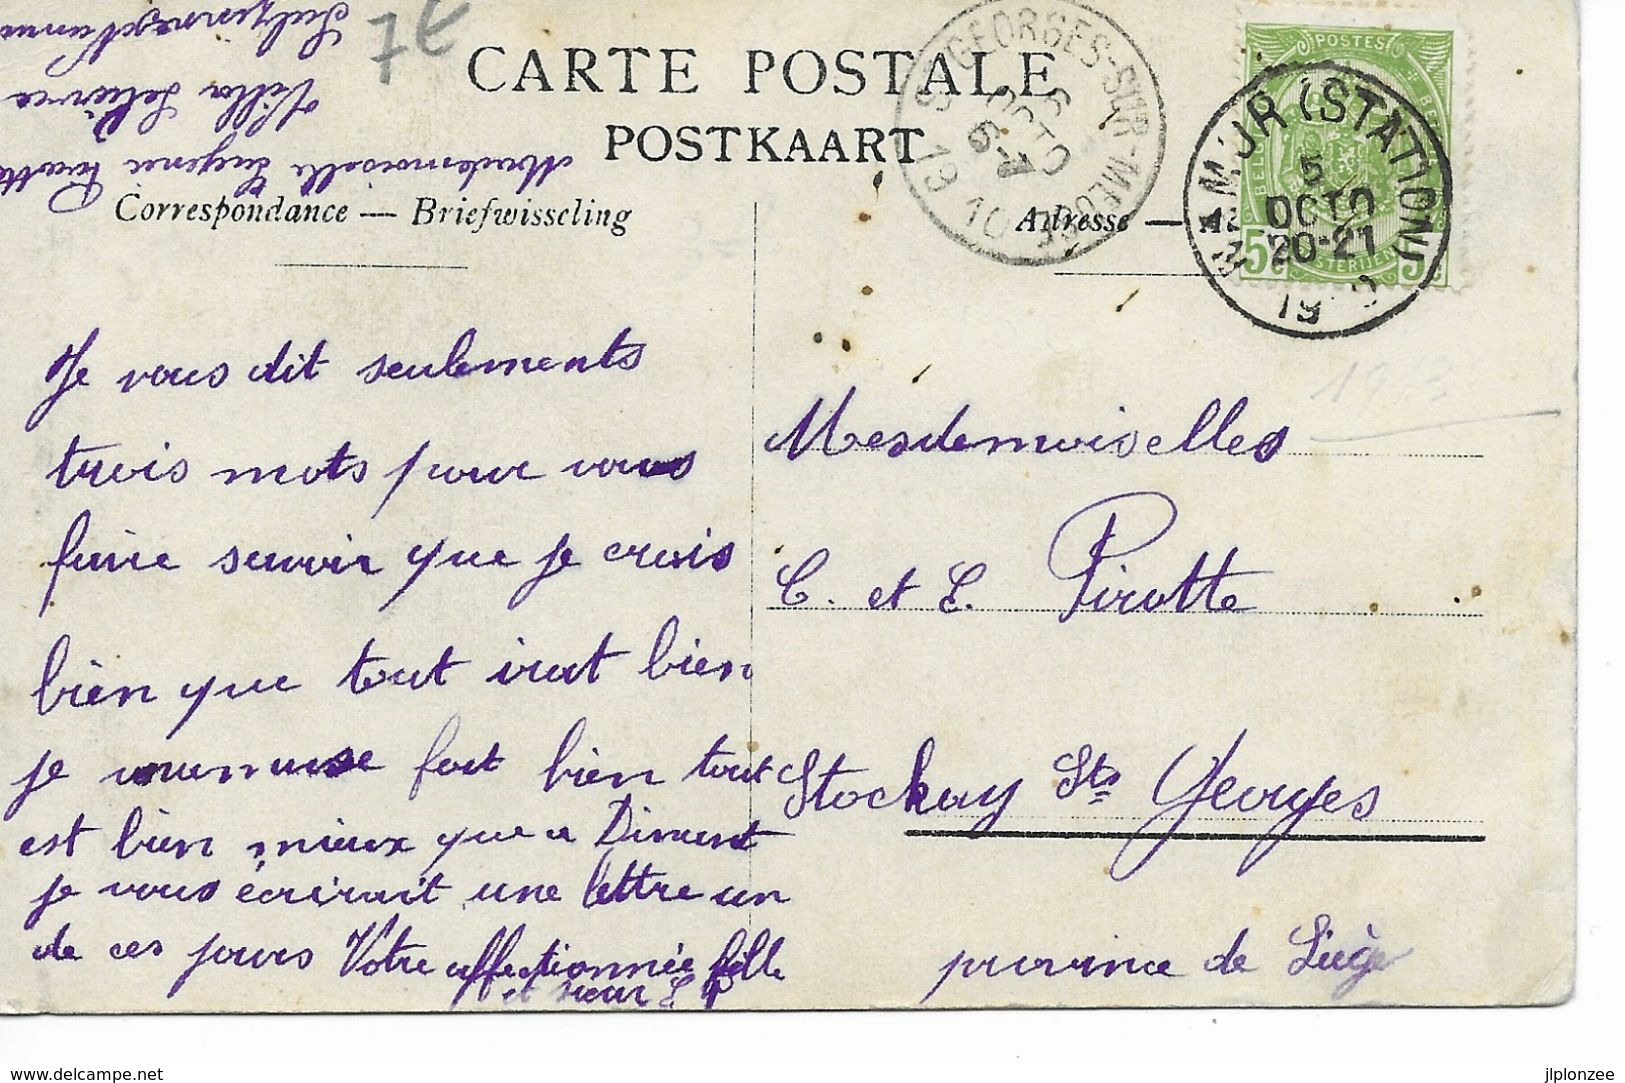 7€
CARTE POSTALE
POSTKAART
Correspondance — Briefwisseling
Adresse —
Mademoiselle Eugénie Pirotte
Villa
ST GEORGES-SUR-MEUSE
6 OCTO
1910
NAMUR (STATION)
5 OCTO
20-21
19
POSTES
5c
5c
1913
Je vous dit seulements
trois mots pour vous
faire savoir que je crois
bien que tout irat bien
je fort bien tout
est bien mieux que a Dinant
je vous écrirait une lettre un
de ces jours Votre affectionnée fille
et sœur E P
Mesdemoiselles
C. et E. Pirotte
Stockay Sts Georges
province de Liège
www.delcampe.net
jlplonzee